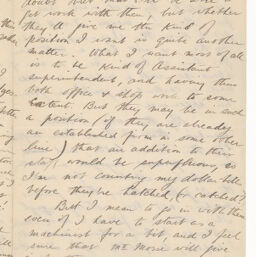 doubt that
get work with them but whether
they'll give me the kind of
position I want is quite another
matter. What I want most of all
is to be kind of Assistant
Superintendent, and having thus
both office & shop work to some
extent. But they may be in such
a position (if they are already
an established firm in some other
line) that an addition to their
staff would be superfluous so
I'm not counting my dollar bills
before they're hatched (or catched?)
But I mean to go in with them
even if I have to start as a
machinist for a bit and I feel
sure that Mr Morse will give